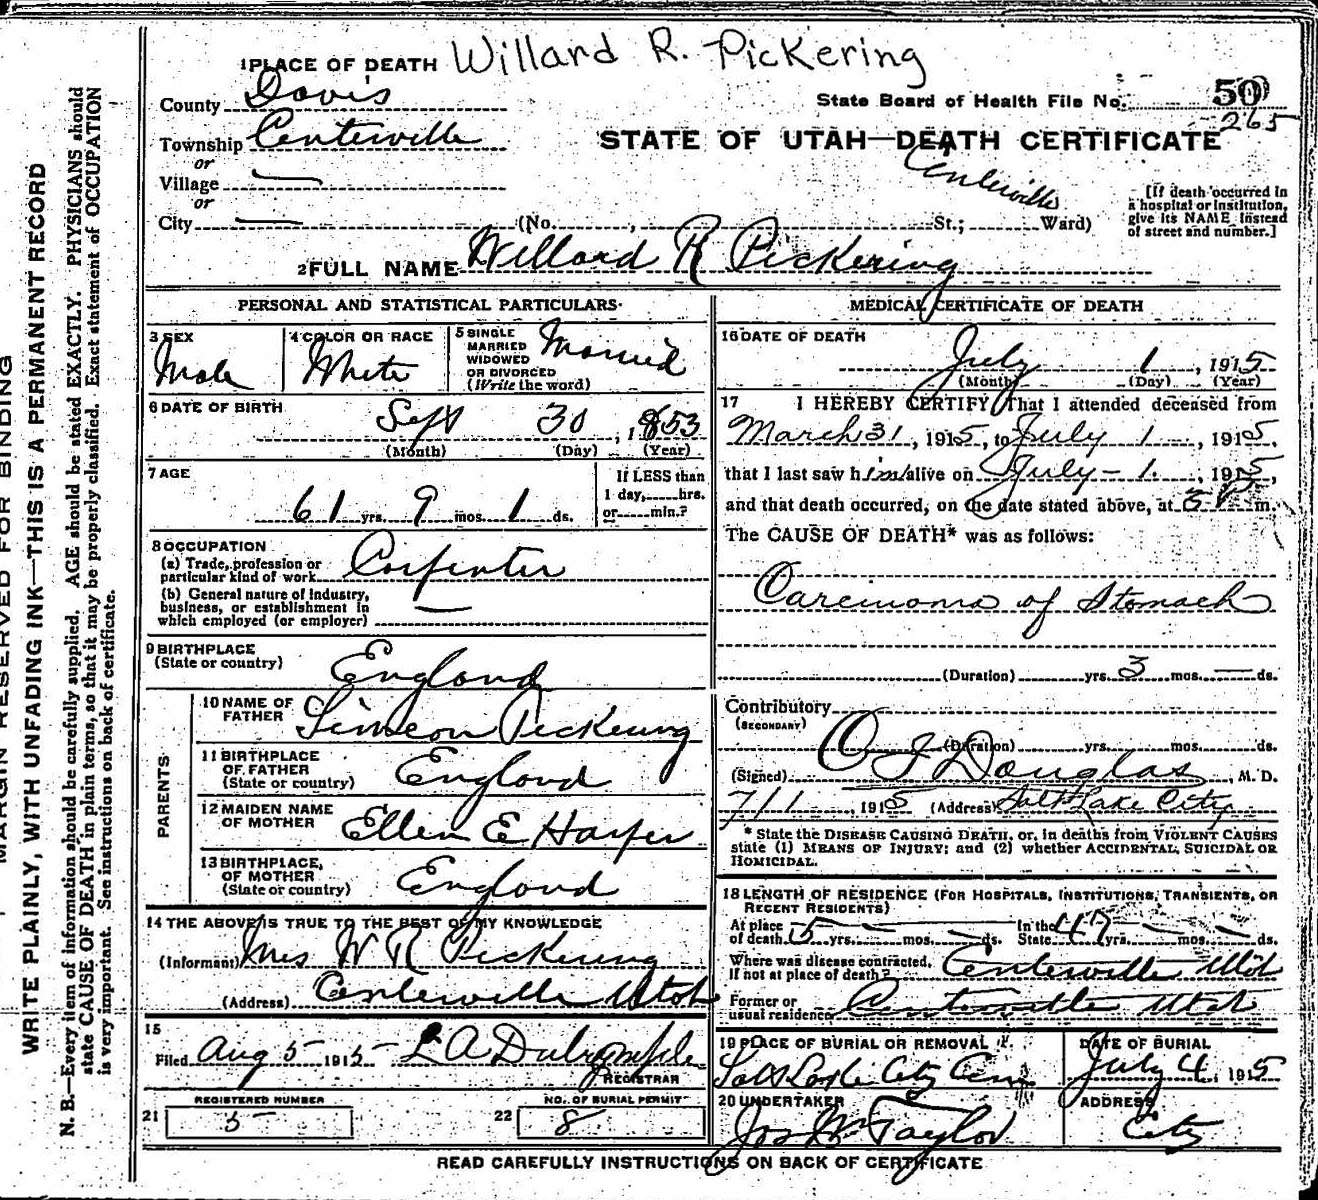 Willard R. Pickering
1 PLACE OF DEATH
County Davis
State Board of Health File No. 50
265
Township Centerville
STATE OF UTAH—DEATH CERTIFICATE
or
Village —
or
City — (No. , St.; Ward)
Centerville
[If death occurred in
a hospital or institution,
give its NAME instead
of street and number.]
2 FULL NAME Willard R Pickering
PERSONAL AND STATISTICAL PARTICULARS
3 SEX
Male
4 COLOR OR RACE
White
5 SINGLE
MARRIED
WIDOWED
OR DIVORCED
(Write the word)
Married
6 DATE OF BIRTH
Sept 30, 1853
(Month) (Day) (Year)
7 AGE
61 yrs. 9 mos. 1 ds.
If LESS than
1 day, hrs.
or min.?
8 OCCUPATION
(a) Trade, profession or
particular kind of work Carpenter
(b) General nature of industry,
business, or establishment in
which employed (or employer) —
9 BIRTHPLACE
(State or country) England
PARENTS
10 NAME OF
FATHER Simeon Pickering
11 BIRTHPLACE
OF FATHER
(State or country) England
12 MAIDEN NAME
OF MOTHER Ellen E Harper
13 BIRTHPLACE,
OF MOTHER
(State or country) England
14 THE ABOVE IS TRUE TO THE BEST OF MY KNOWLEDGE
(Informant) Mrs W R Pickering
(Address) Centerville Utah
15
Filed Aug 5 1915 L A
REGISTRAR
REGISTERED NUMBER
21 5
NO. OF BURIAL PERMIT
22 8
MEDICAL CERTIFICATE OF DEATH
16 DATE OF DEATH
July 1, 1915
(Month) (Day) (Year)
17 I HEREBY CERTIFY, That I attended deceased from
March 31, 1915, to July 1, 1915,
that I last saw him alive on July - 1, 1915,
and that death occurred, on the date stated above, at m.
The CAUSE OF DEATH* was as follows:
Carcinoma of Stomach
(Duration) yrs. 3 mos. — ds.
Contributory
(SECONDARY)
(Duration) yrs. mos. ds.
(Signed) O J Douglas, M. D.
7/1, 1915 (Address) Salt Lake City
* State the DISEASE CAUSING DEATH, or, in deaths from VIOLENT CAUSES
state (1) MEANS OF INJURY; and (2) whether ACCIDENTAL, SUICIDAL OR
HOMICIDAL.
18 LENGTH OF RESIDENCE (FOR HOSPITALS, INSTITUTIONS, TRANSIENTS, OR
RECENT RESIDENTS)
At place In the
of death 5 yrs. — mos. — ds. State yrs. — mos. — ds.
Where was disease contracted,
If not at place of death? Centerville Utah
Former or
usual residence Centerville Utah
19 PLACE OF BURIAL OR REMOVAL
Salt Lake City Cem
DATE OF BURIAL
July 4, 1915
20 UNDERTAKER
Jos W Taylor
ADDRESS
City
READ CAREFULLY INSTRUCTIONS ON BACK OF CERTIFICATE
MARGIN RESERVED FOR BINDING
WRITE PLAINLY, WITH UNFADING INK—THIS IS A PERMANENT RECORD
N. B.—Every item of information should be carefully supplied. AGE should be stated EXACTLY. PHYSICIANS should
state CAUSE OF DEATH in plain terms, so that it may be properly classified. Exact statement of OCCUPATION
is very important. See instructions on back of certificate.